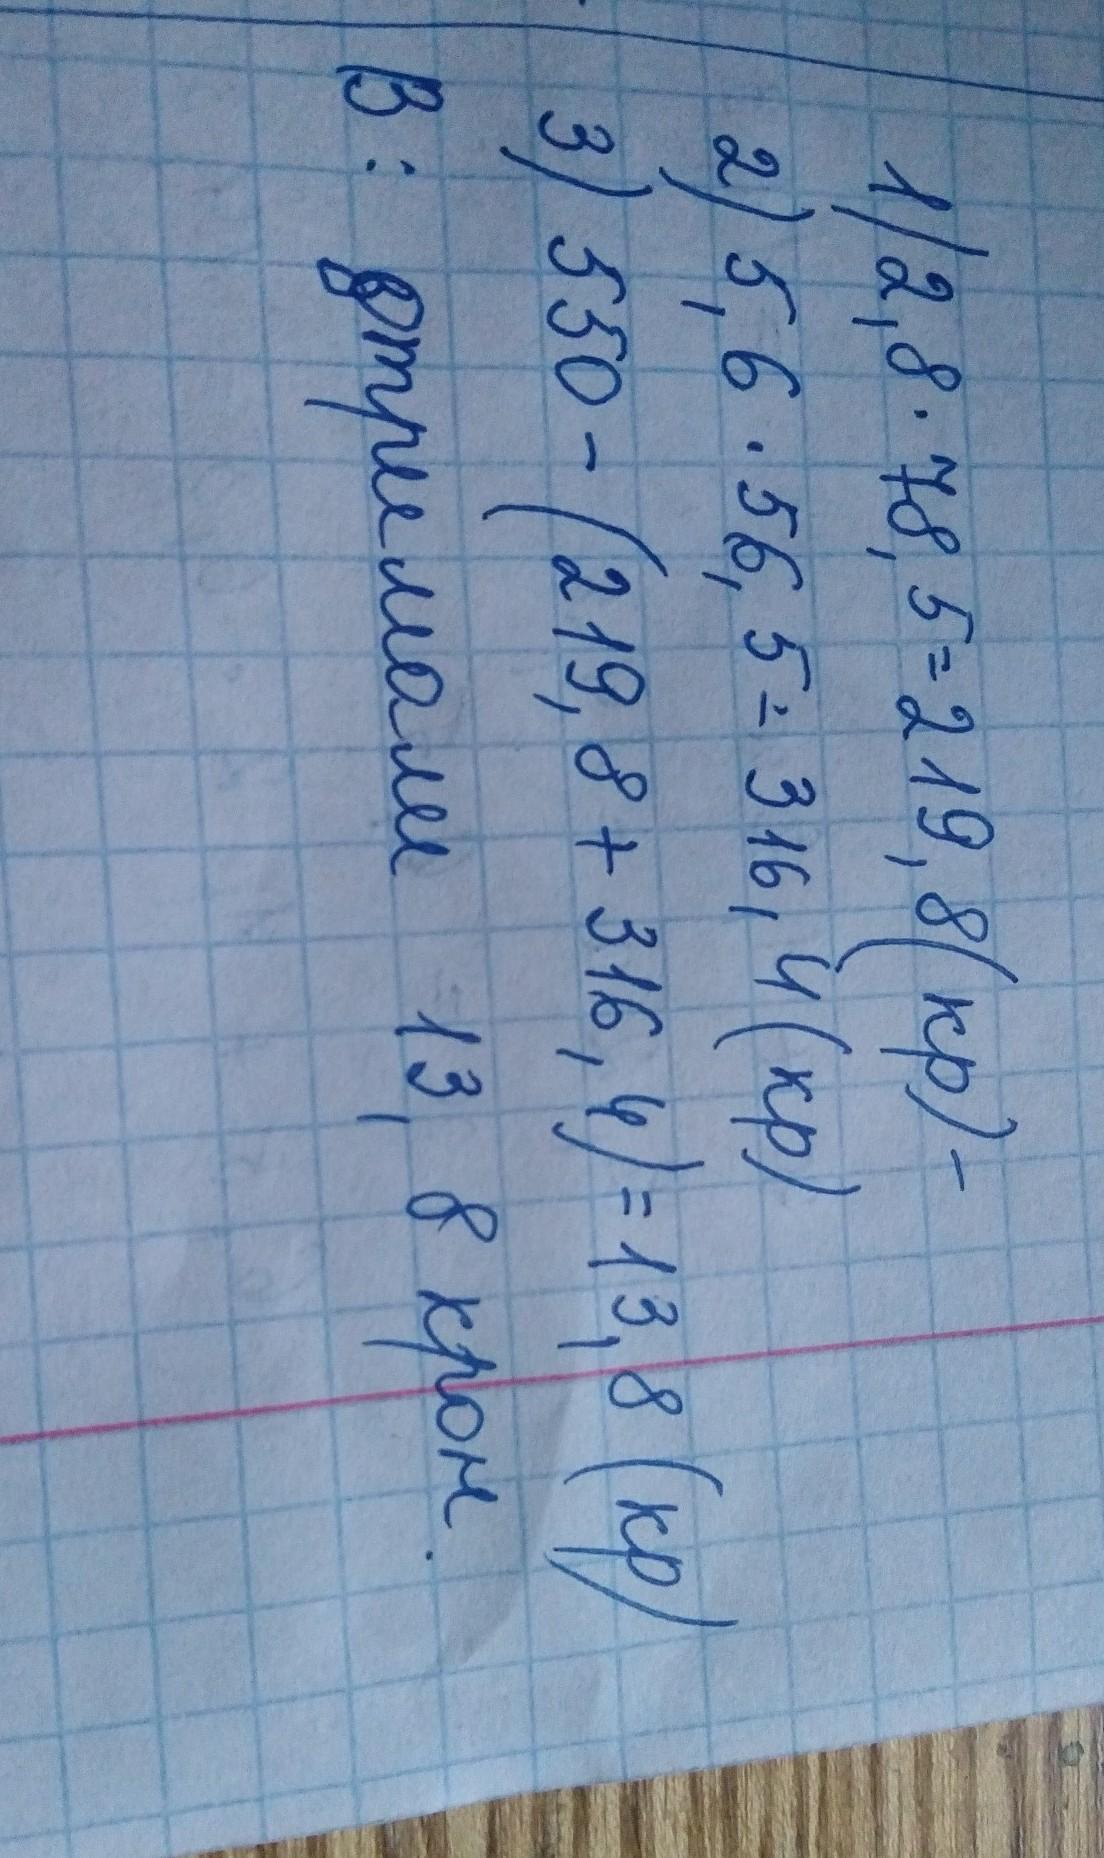 1) 2,8 · 78,5 = 219,8 (кр) -
2) 5,6 · 56,5 = 316,4 (кр)
3) 550 - (219,8 + 316,4) = 13,8 (кр)
В: отримали 13,8 крон.